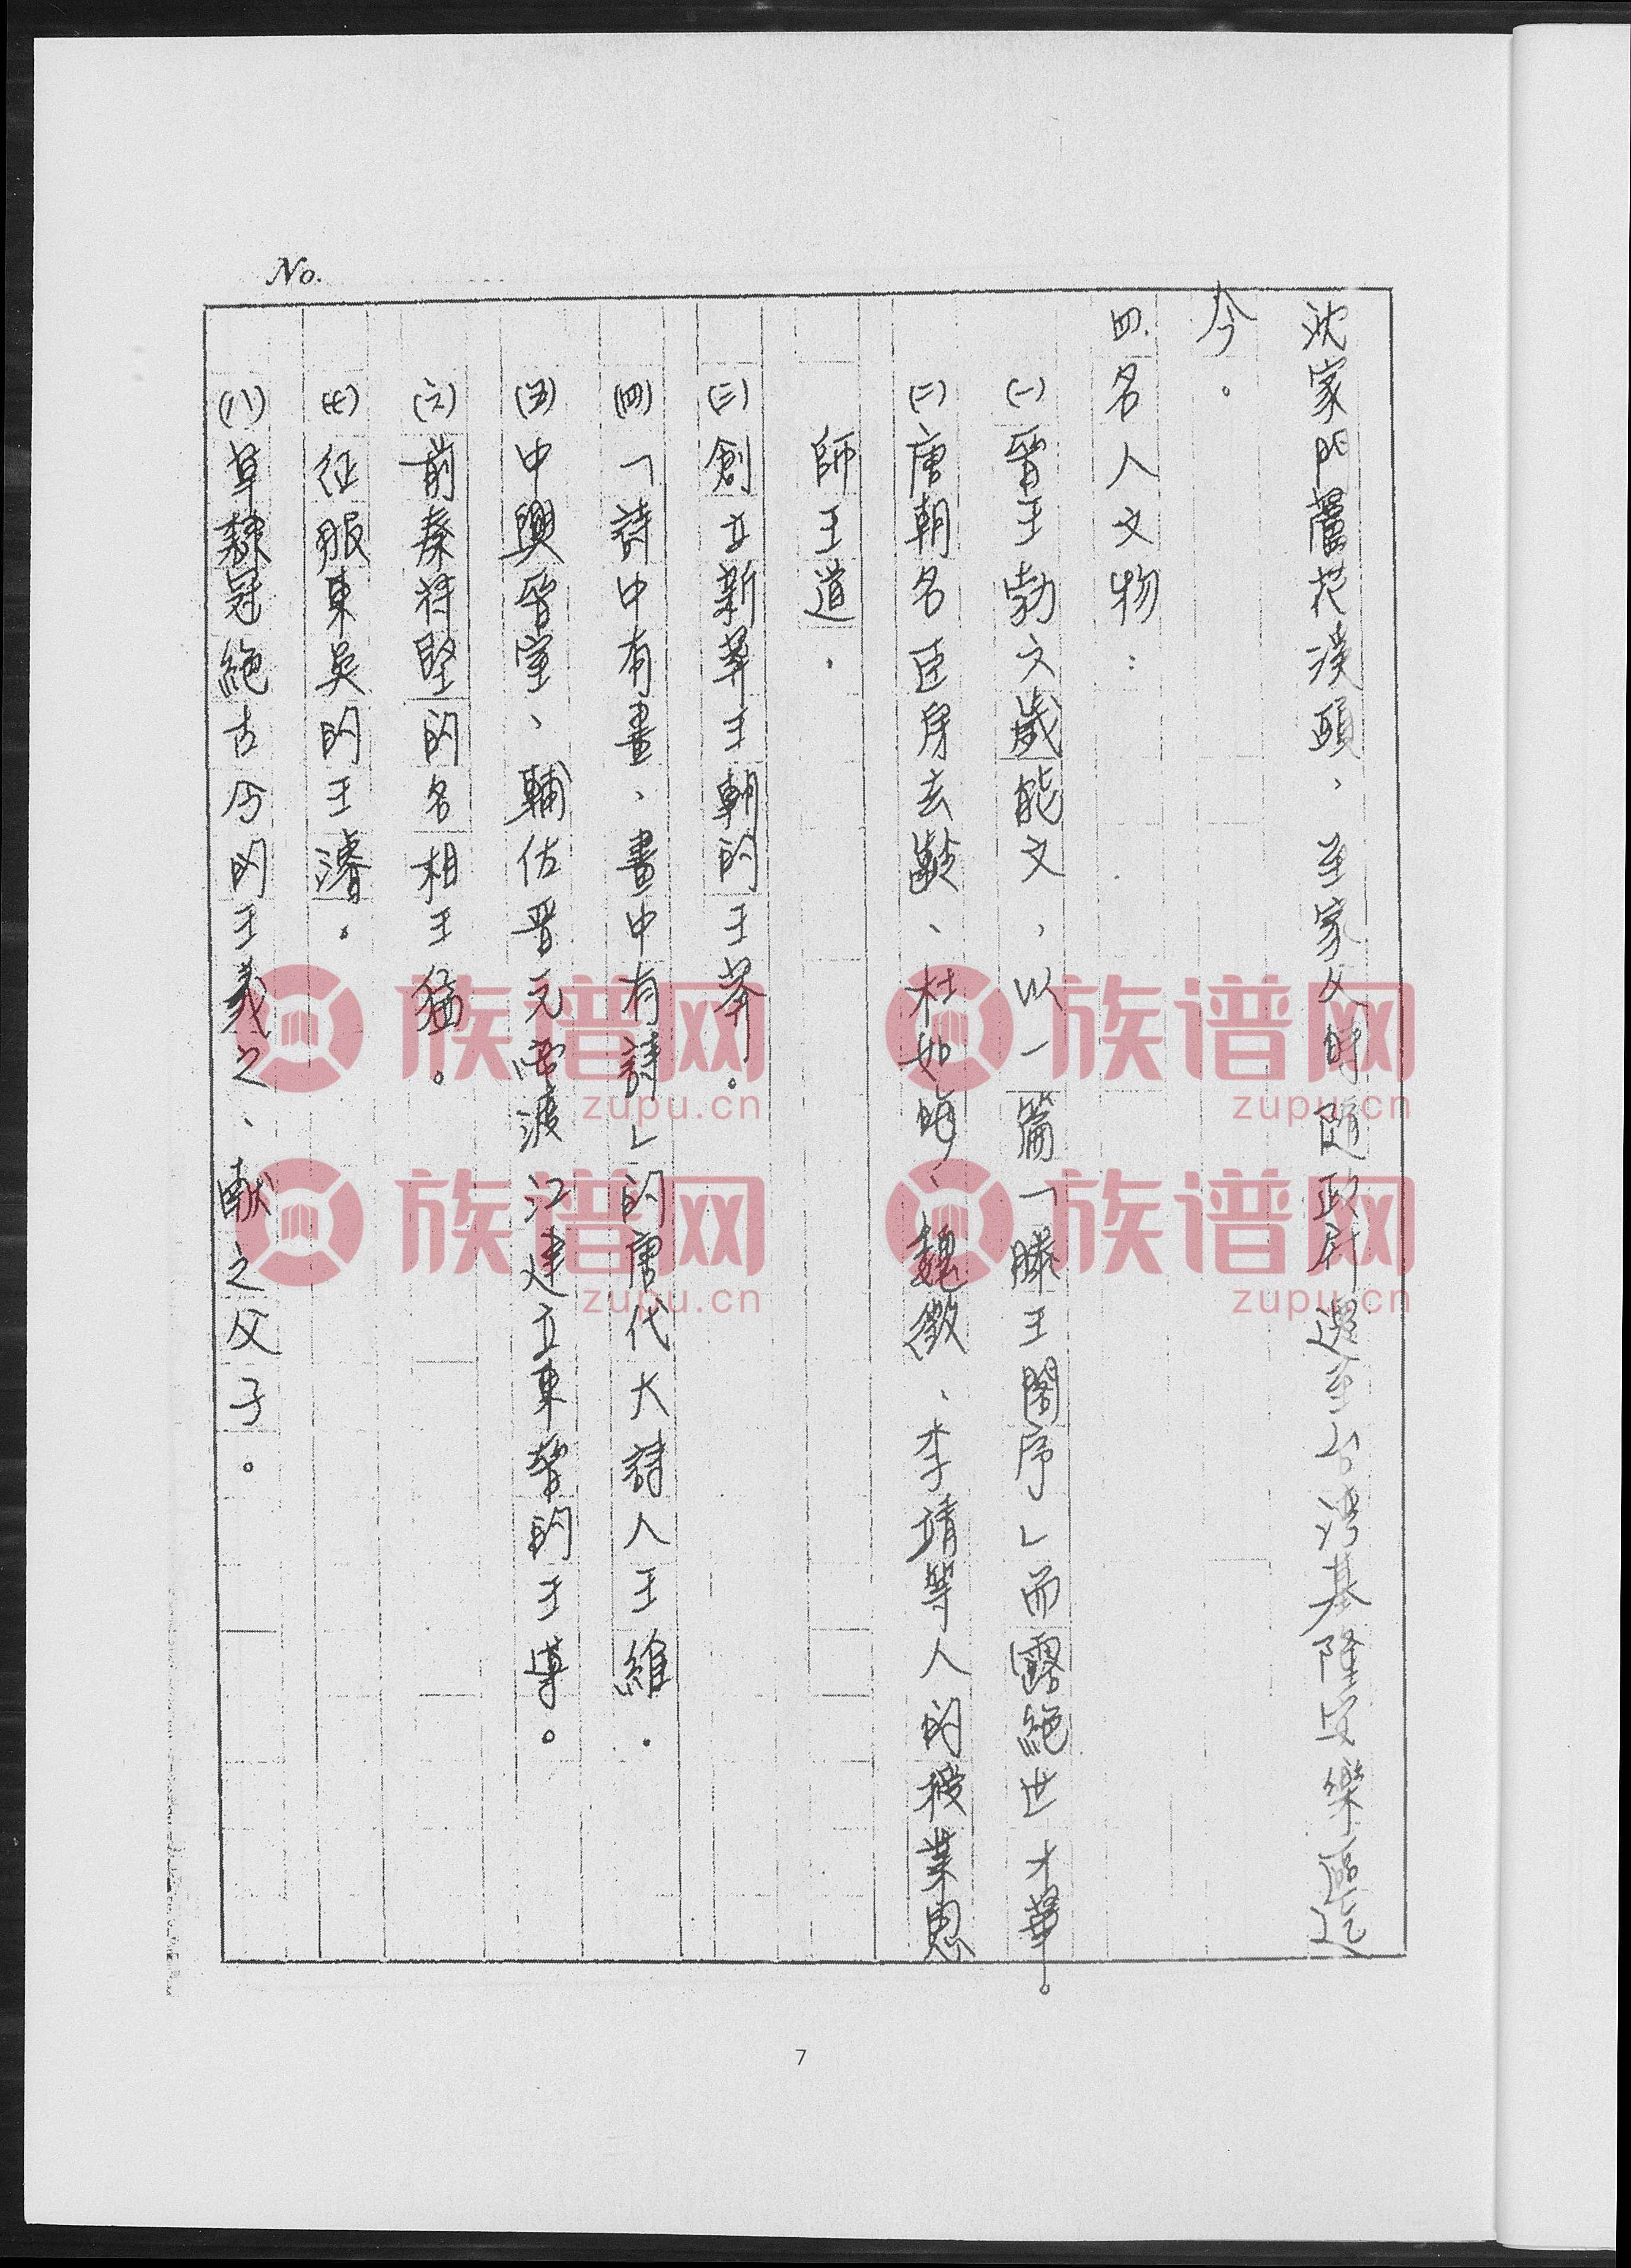 No.
沈家門蘆花漢頭、至家父時隨政府遷至台湾基隆安樂區迄
今。
四.名人文物：
(一)晉王勃六歲能文，以一篇「滕王閣序」而露絕世才華。
(二)唐朝名臣房玄齡、杜如晦、魏徵、李靖等人的授業恩
師王道.
(三)創立新莽王朝的王莽。
(四)「詩中有畫、畫中有詩」的唐代大詩人王維.
(五)中興晉室、輔佐晋元帝渡江建立東晉的王導。
(六)前秦苻堅的名相王猛。
(七)征服東吳的王濬.
(八)草隸冠絕古今的王羲之、献之父子。
7
族谱网
zupu.cn
族谱网
zupu.cn
族谱网
zupu.cn
族谱网
zupu.cn